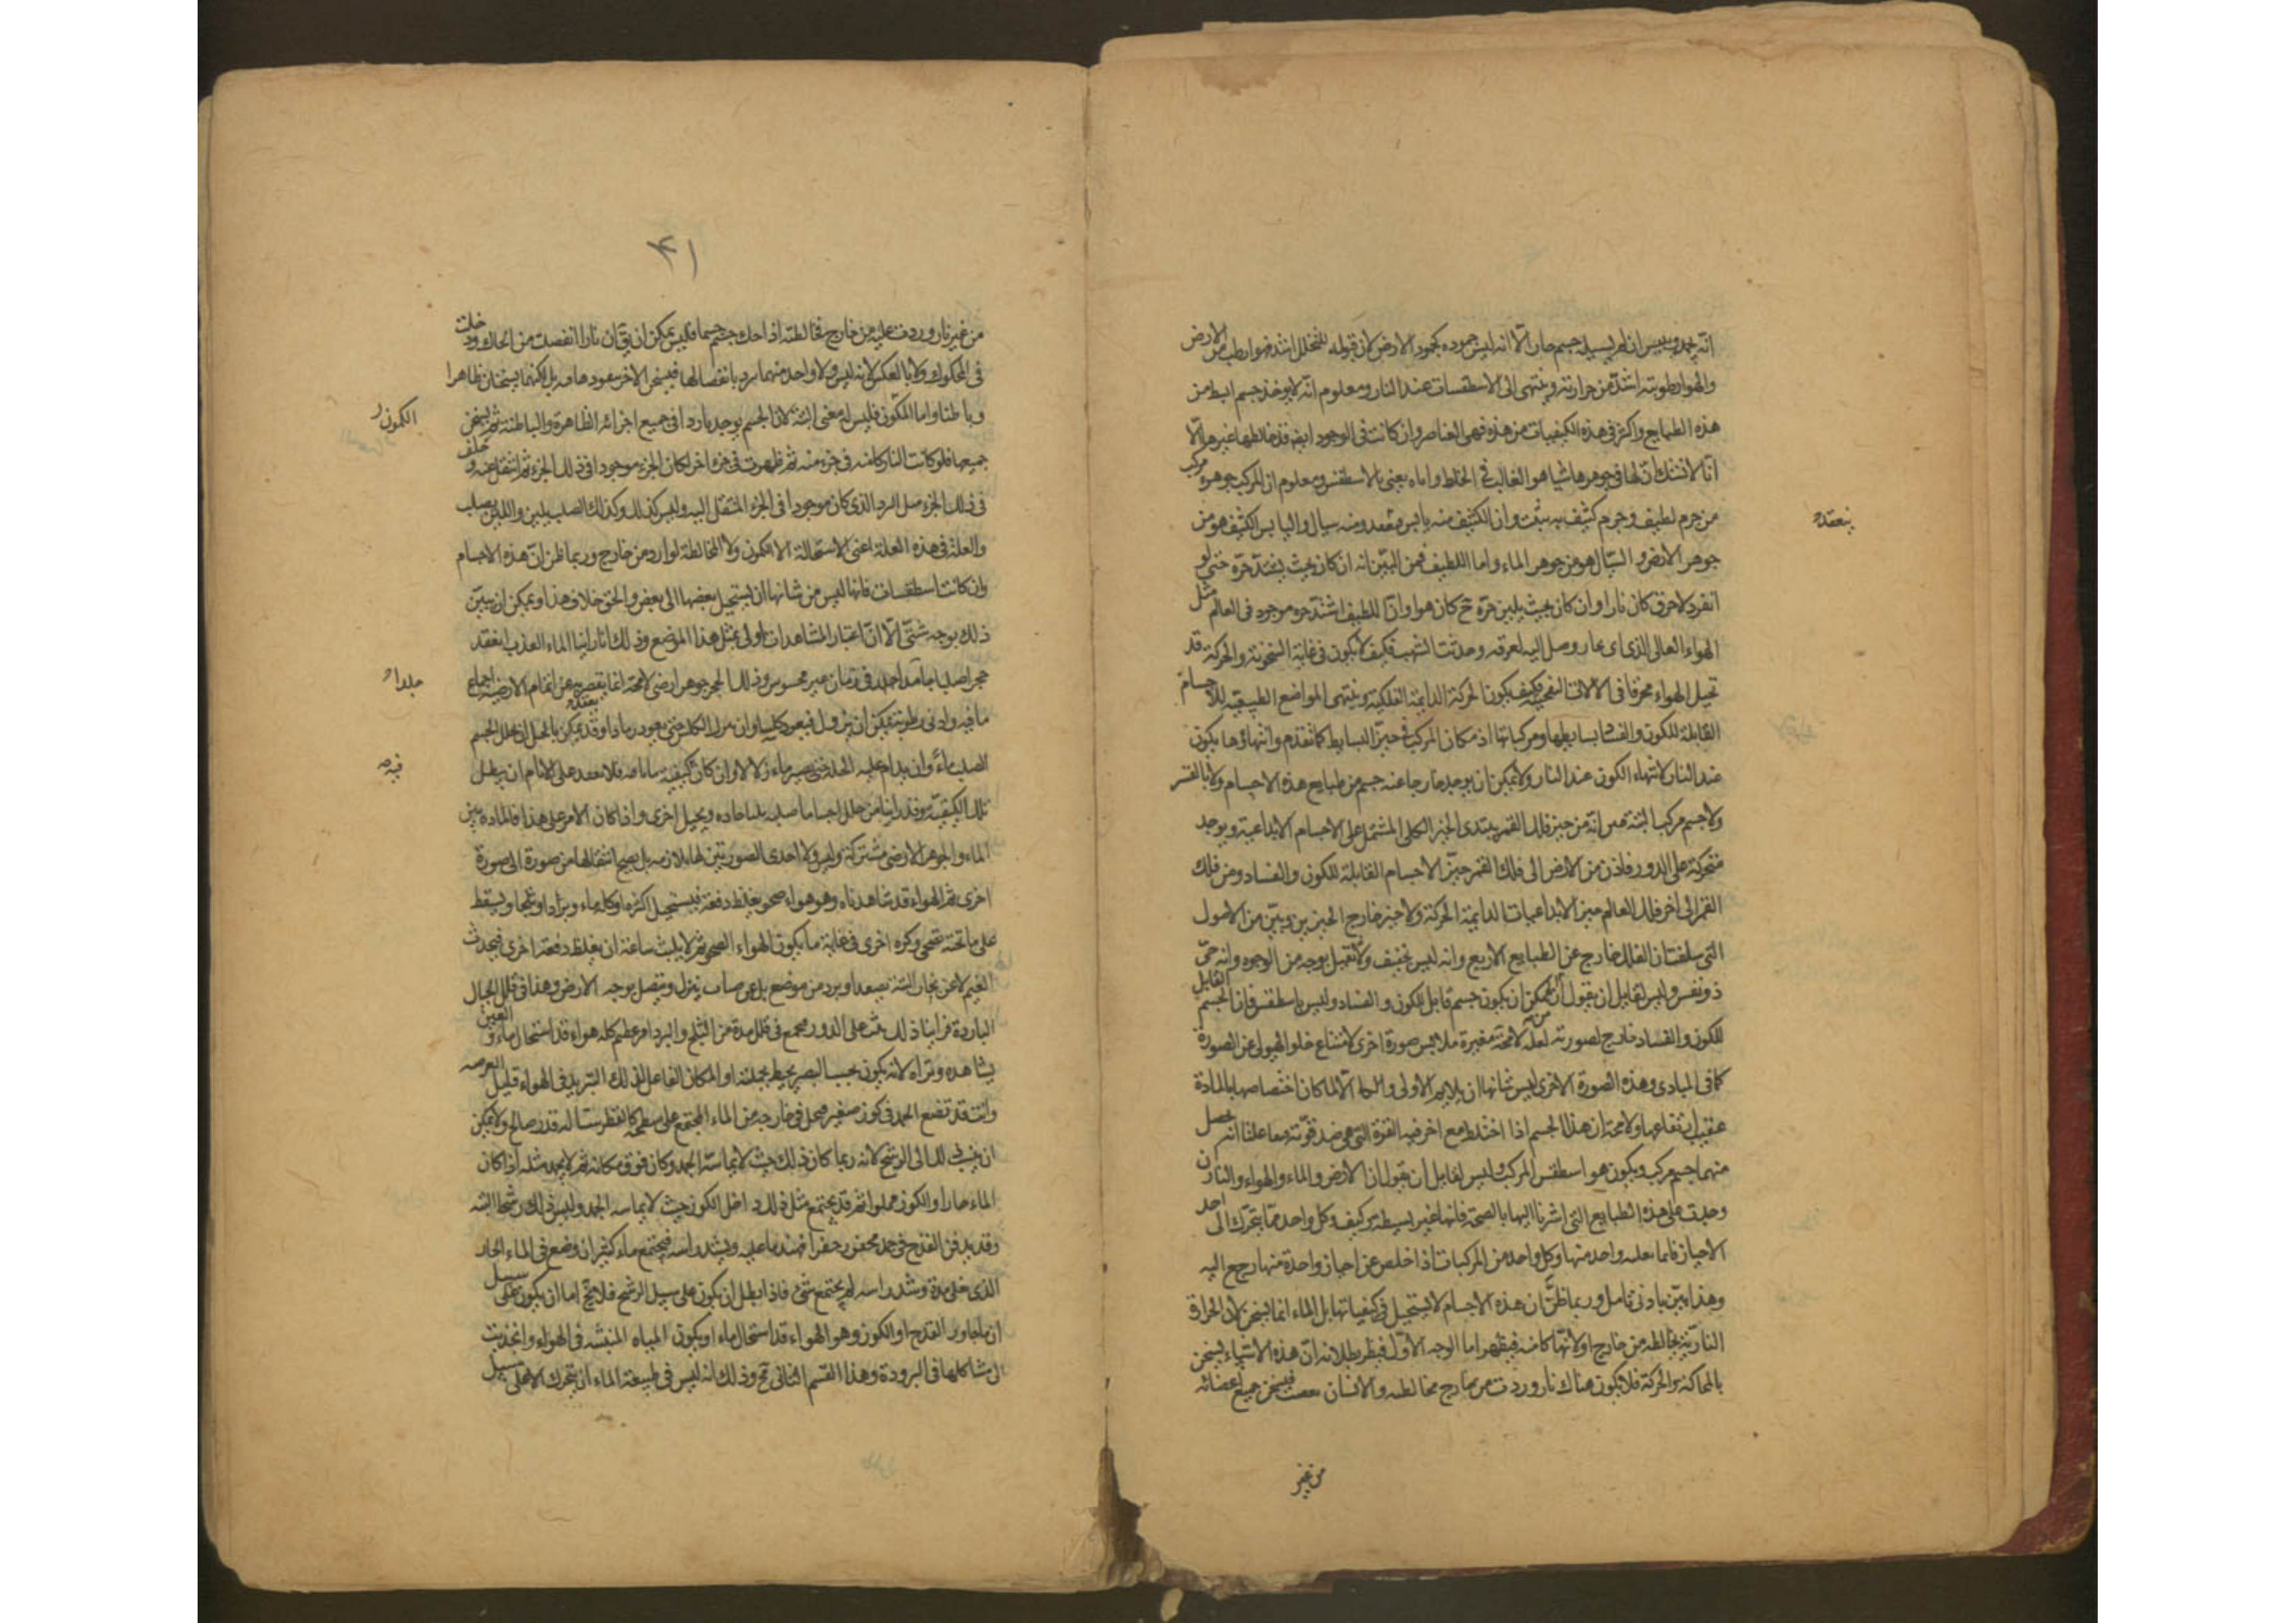 انه يجمد وييبس ان لم يسيله جسم حار الا انه ليس جموده كجمود الارض لان قبوله للتخلخل اشد فهو ارطب من الارض
والهواء رطوبته اشد من حرارته وينتهى الى الاسطقسات عند النار ومعلوم انه لا يوجد جسم ابسط من
هذه الطبايع واكثر فى هذه الكيفيات من هذه فهى العناصر وان كانت فى الوجود ايضا قد خالطها غيرها الا
انا لا نشك ان لها فى جوهرها شيئا هو الغالب فى الخلط واياه يعنى بالاسطقس ومعلوم ان المركب جوهره مركب
من جرم لطيف وجرم كثيف به يثبت وان الكثيف منه يابس منعقد ومنه سيال واليابس الكثيف هو من
ينعقد
جوهر الارض والسيال هو من جوهر الماء واما اللطيف فمن البين انه ان كان بحيث يشتد حره حتى لو
انفرد لاحرق كان نارا وان كان بحيث يلين حره كان هواء وان اللطيف اشد حره موجود فى العالم مثل
الهواء العالى الذى اى بخار وصل اليه لعرقه وحدثت الشهب فكيف لا يكون فى غاية السخونة والحركة قد
تحيل الهواء محرقا فى الالات النفخية فكيف يكون الحركة الدايمة الفلكية وينتهى المواضع الطبيعية للاجسام
القابلة للكون والفساد بسايطها ومركباتها اذ مكان المركب فى حيز البسايط كما تقدم وانتهاؤها يكون
عند النار لانتهاء الكون عند النار ولا يمكن ان يوجد خارجا عنه جسم من طبايع هذه الاجسام ولا بالقسر
ولا جسم مركب البتة انه من حيز فلك القمر يبتدى الحيز الكلى المشتمل على الاجسام الابداعية ويوجد
متحركة على الدور فاذن من الارض الى فلك القمر حيز الاجسام القابلة للكون والفساد ومن فلك
القمر الى اخر فلك العالم حيز الابداعيات الدايمة الحركة ولا حيز خارج الحيزين وبين من الاصول
التى سلفت ان الفلك خارج عن الطبايع الاربع وانه ليس بخفيف ولا ثقيل بوجه من الوجوه وانه حى
ذو نفس وليس لقايل ان يقول ان يمكن ان يكون جسم قابل للكون والفساد وليس باسطقس فان الجسم القابل
للكون والفساد خارج لصورته لعله من لا محة مغيرة ملابس صورة اخرى لامتناع خلو الهيولى عن الصورة
كما فى المبادى وهذه الصورة الاخرى ليس شانها ان يلايم الاولى والا لما كان اختصاصها بالمادة
عقيب ارتفاعها ولا محة ان هذا الجسم اذا اختلط مع اخر فيه القوة التى هى ضد قوته تفاعلتا انه يحصل
منهما جسم مركب ويكون هو اسطقس المركب وليس لقايل ان يقول ان الارض والماء والهواء والنار ان
وجدت على هذه الطبايع التى اشرنا اليها بالصحة فانها غير بسيطة بتركيب وكل واحد مما يتحرك الى احد
الاحياز فانما واحد منها وكل واحد من المركبات اذا خلص عن احياز واحدة منها رجع اليه
وهذا يتبين بادنى تامل وربما ظن ان هذه الاجسام لا يستحيل فى كيفياتها بل الماء انما يسخن لان الحرارة
النارية يخالطه من خارج او لانها كامنة فيظهر اما الوجه الاول فيظهر بطلانه ان هذه الاشياء يسخن
بالمحاكة والحركة فلا يكون هناك نار وردت من خارج مخالطه والانسان يغضب فيسخن جميع اعضائه
من غير
۴۱
من غير نار وردت عليه من خارج مخالطته اذا حك جسم جسما فليس يمكن ان يق ان نارا انفصلت من الحاك ودخلت
فى المحكوك ولا بالعكس لانه ليس ولا واحد منهما يبرد بانفصالها فيسخن الاخر بنفوذها فيه بل لكنهما يسخنان ظاهرا
وباطنا واما الكمون فليس له معنى البتة لان الجسم يوجد باردا فى جميع اجزائه الظاهرة والباطنة ثم يسخن
الكمون
جميعها فلو كانت النار كامنة فى جزء منه ثم ظهرت فى جزء اخر لكان الجزء موجودا فى ذلك الجزء ثم انتقل عنه وخلف
فى ذلك الجزء مثل البرد الذى كان موجودا فى الجزء المنتقل اليه وليس كذلك وكذلك الصلب يلين واللين يصلب
والعلة فى هذه العلة اعنى الاستحالة لا الكمون ولا المخالطة لوارد من خارج وربما ظن ان هذه الاجسام
وان كانت اسطقسات فانها ليس من شانها ان يستحيل بعضها الى بعض والحق خلاف هذا ويمكن ان نبين
ذلك بوجوه شتى الا ان اعتبار المشاهدات اولى بمثل هذا الموضع وذلك انا راينا الماء العذب انعقد
حجرا صلبا جامدا جلمدا فى زمان غير محسوس وذلك الحجر جوهر ارضى لا محة انما يقصر به عن اتمام الارضية اجتماع
جلمدا
ما فيه وادنى رطوبة يمكن ان يزول فيعود كلسا وان يترك الكلس حتى يعود رمادا وقد يمكن بالحيل ان يحلل الجسم
الصلب ماء وان يدام عليه الحل حتى يصير ماء زلالا وان كان كيفية فلا يبعد على الايام ان يبطل
فيه
تلك الكيفية وقد راينا من حلل اجساما صلبة بمياه حادة وبحيل اخرى واذا كان الامر على هذا فالمادة بين
الماء والجوهر الارضى مشتركة وليس ولا احدى الصورتين لها بلازمة بل يصح انتقالها من صورة الى صورة
اخرى ثم الهواء قد شاهدناه وهو هواء صحو يغلظ دفعة فيستحيل اكثره او كله ماء وبردا وثلجا ويسقط
على ما تحته تصحى وكرة اخرى فى غاية ما يكون الهواء الصحو ثم لا يلبث ساعة ان يغلظ دفعة اخرى فيحدث
الغيم لا عن بخار البتة يصعد او يرد من موضع بل عن ضباب ينزل ويتصل بوجه الارض وهذا فى قلل الجبال
الباردة فراينا ذلك على الدور مجمع فى قلل مدة من الثلج والبرد امر عظيم كله هواء قد استحال ماء والعين
يشاهده وتراه لانه يكون بحسب البصر يحيط بجملته او المكان الفاعل لذلك التبريد فى الهواء قليل العرصه
وانت قد تضع الجمد فى كوز صغير فيحل فى خارجه من الماء المجتمع على سطحه كالقطر شيئا له قدر صالح ولا يمكن
ان ينسب ذلك الى الرشح لانه ربما كان ذلك حيث لا يماسه الجمد وكان فوق مكانه ثم لا نجد مثله اذا كان
الماء حارا والكوز مملوا ثم قد يجتمع مثل ذلك داخل الكوز حيث لا يماسه الجمد وليس ذلك رشحا البتة
وقد يدفن القدح فى جمد محفور حفرا مهندما عليه ويشد راسه فيجتمع ماء كثير ان وضع فى الماء الحار
الذى يغلى مدة وشد راسه لم يجتمع شئ فاذا بطل ان يكون على سبيل الرشح فلا يخ اما ان يكون على سبيل
ان ما جاور القدح او الكوز وهو الهواء قد استحال ماء او يكون المياه المنبثة فى الهواء وانجذبت
الى مشاكلها فى البرودة وهذا القسم الثانى مح وذلك انه ليس فى طبيعة الماء ان يتحرك الا على سبيل